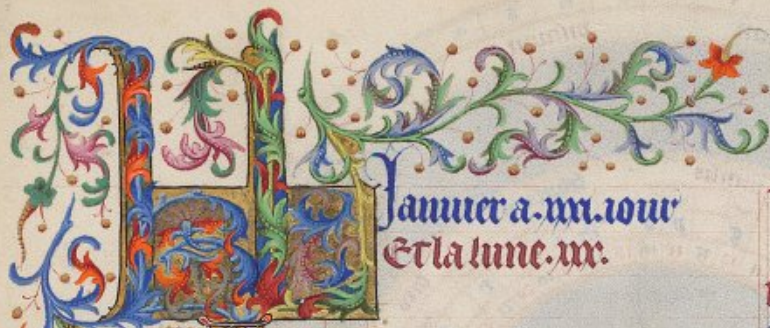 KL
Januier a .xxxi. iour
Et la lune .xxx.